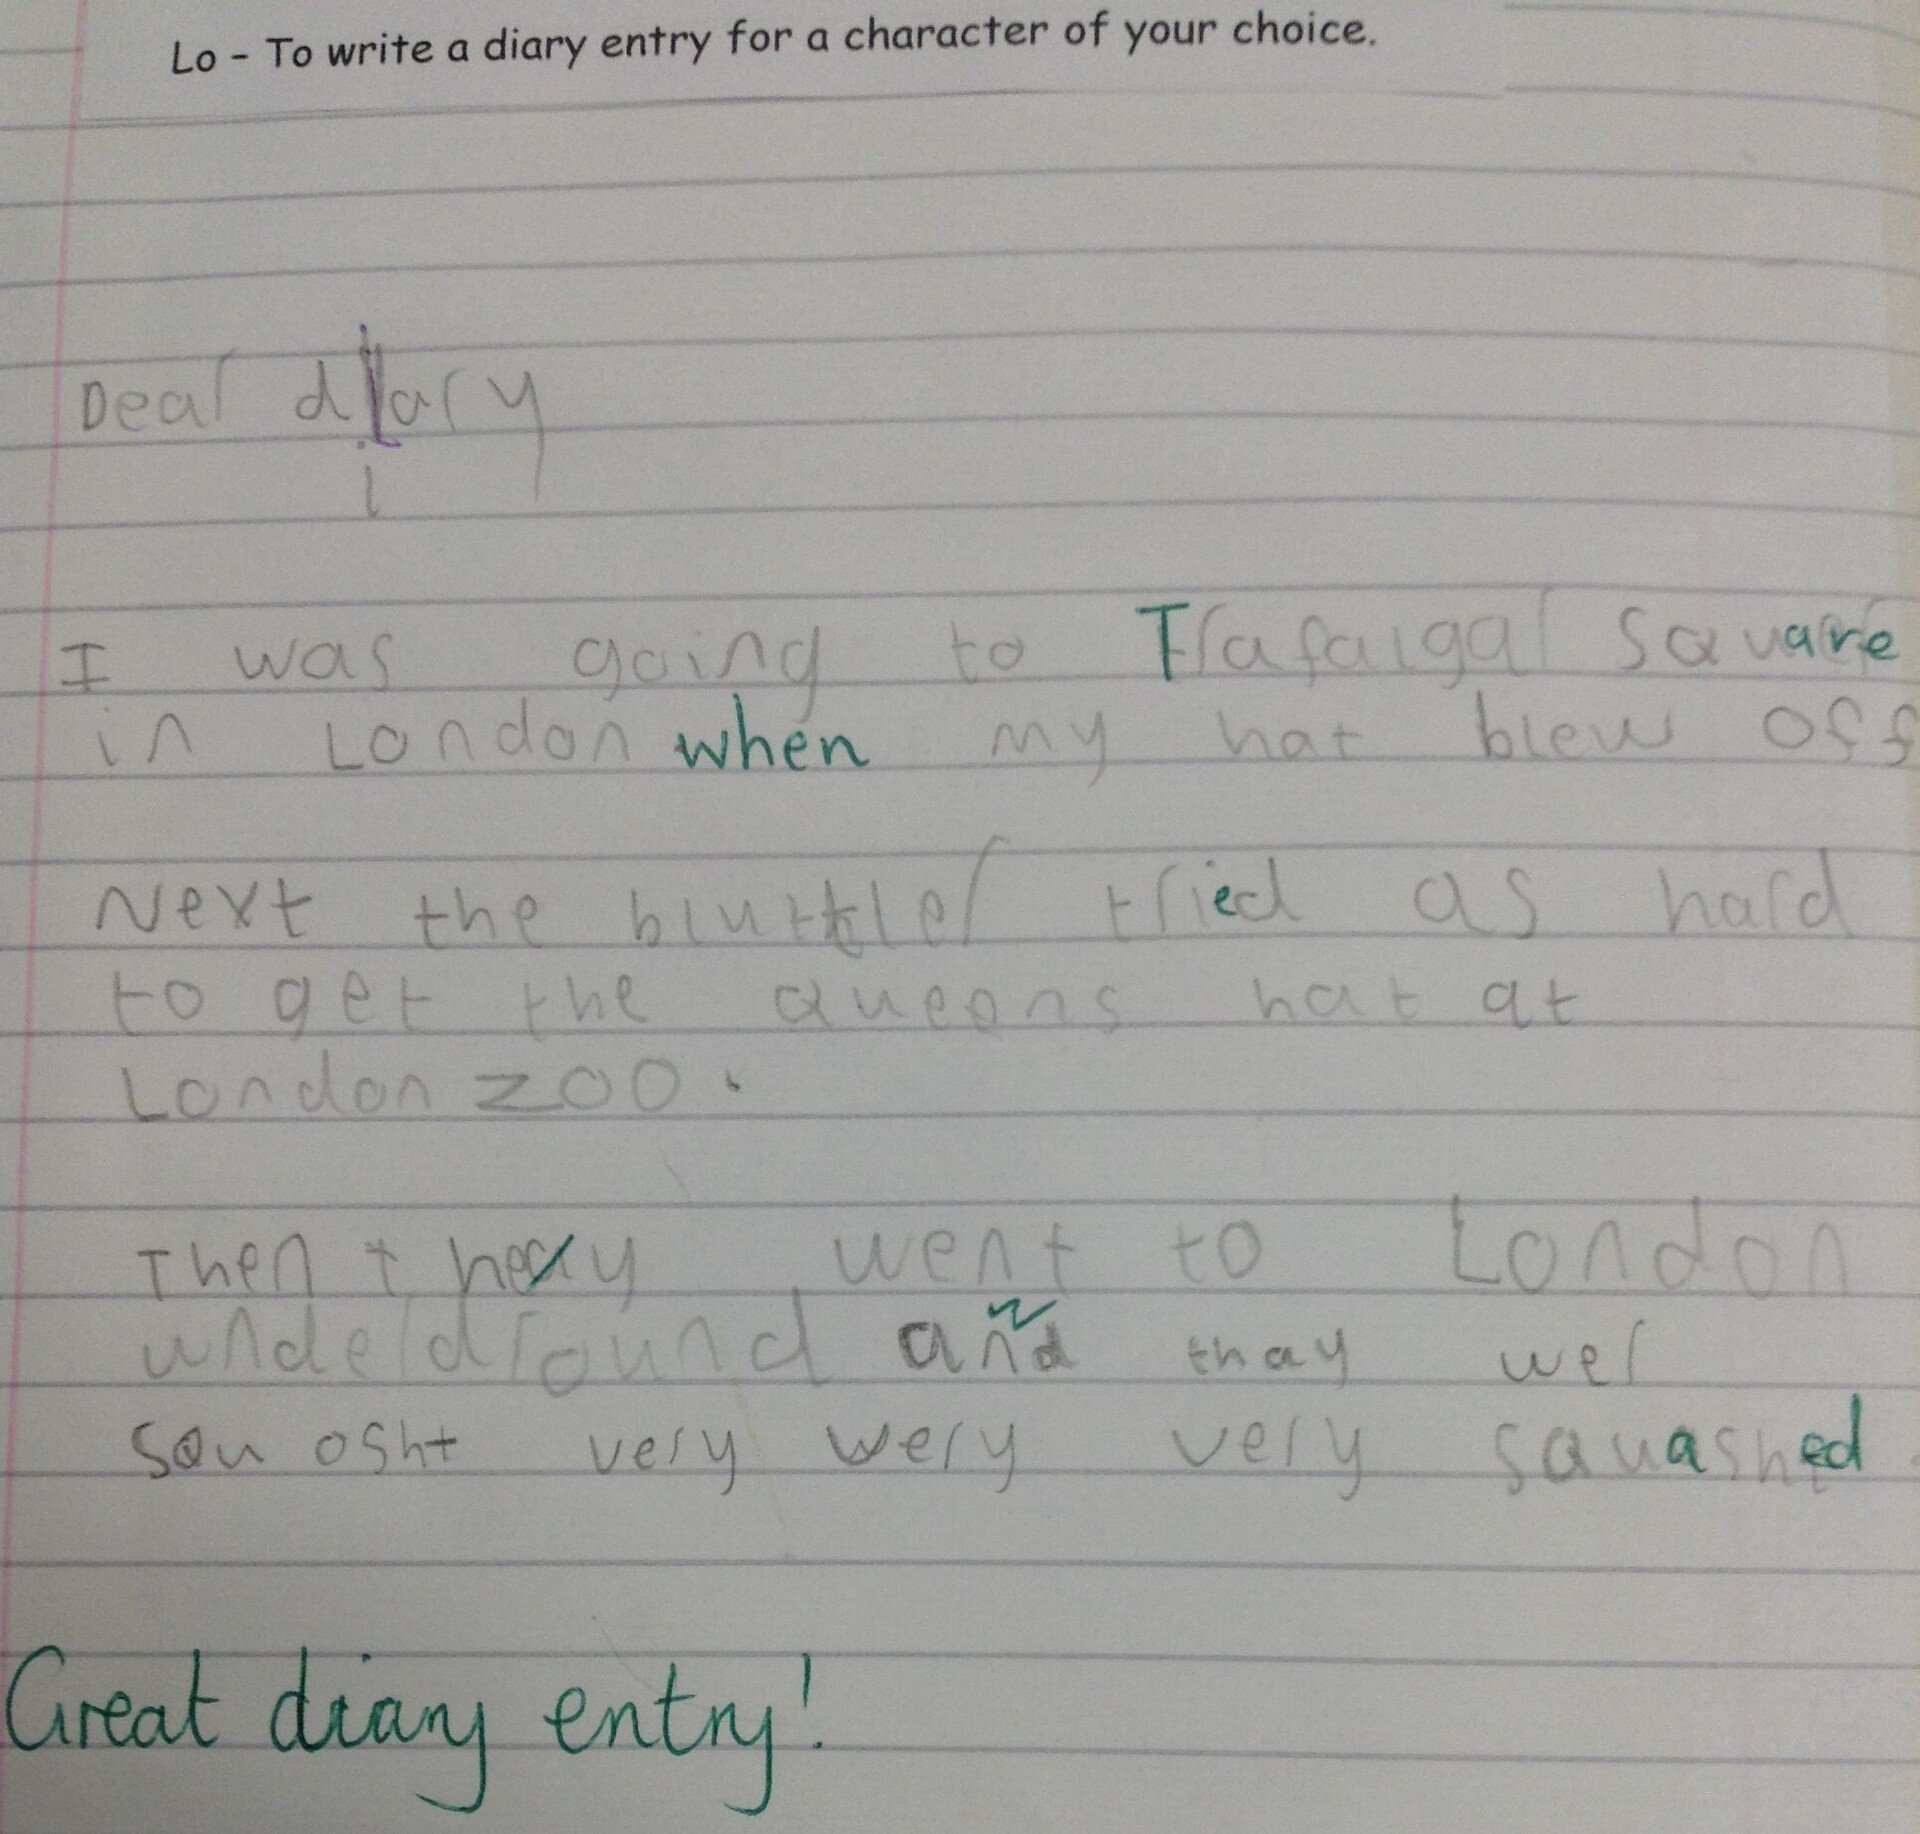 Lo - To write a diary entry for a character of your choice.
Dear diary
i
I was going to Trafalgal Square
in London when my hat blew off
Next the bluttler tried as hard
to get the queens hat at
London zoo.
Then they went to London
underdround and thay wer
squosht very wery very squashed.
Great diary entry!